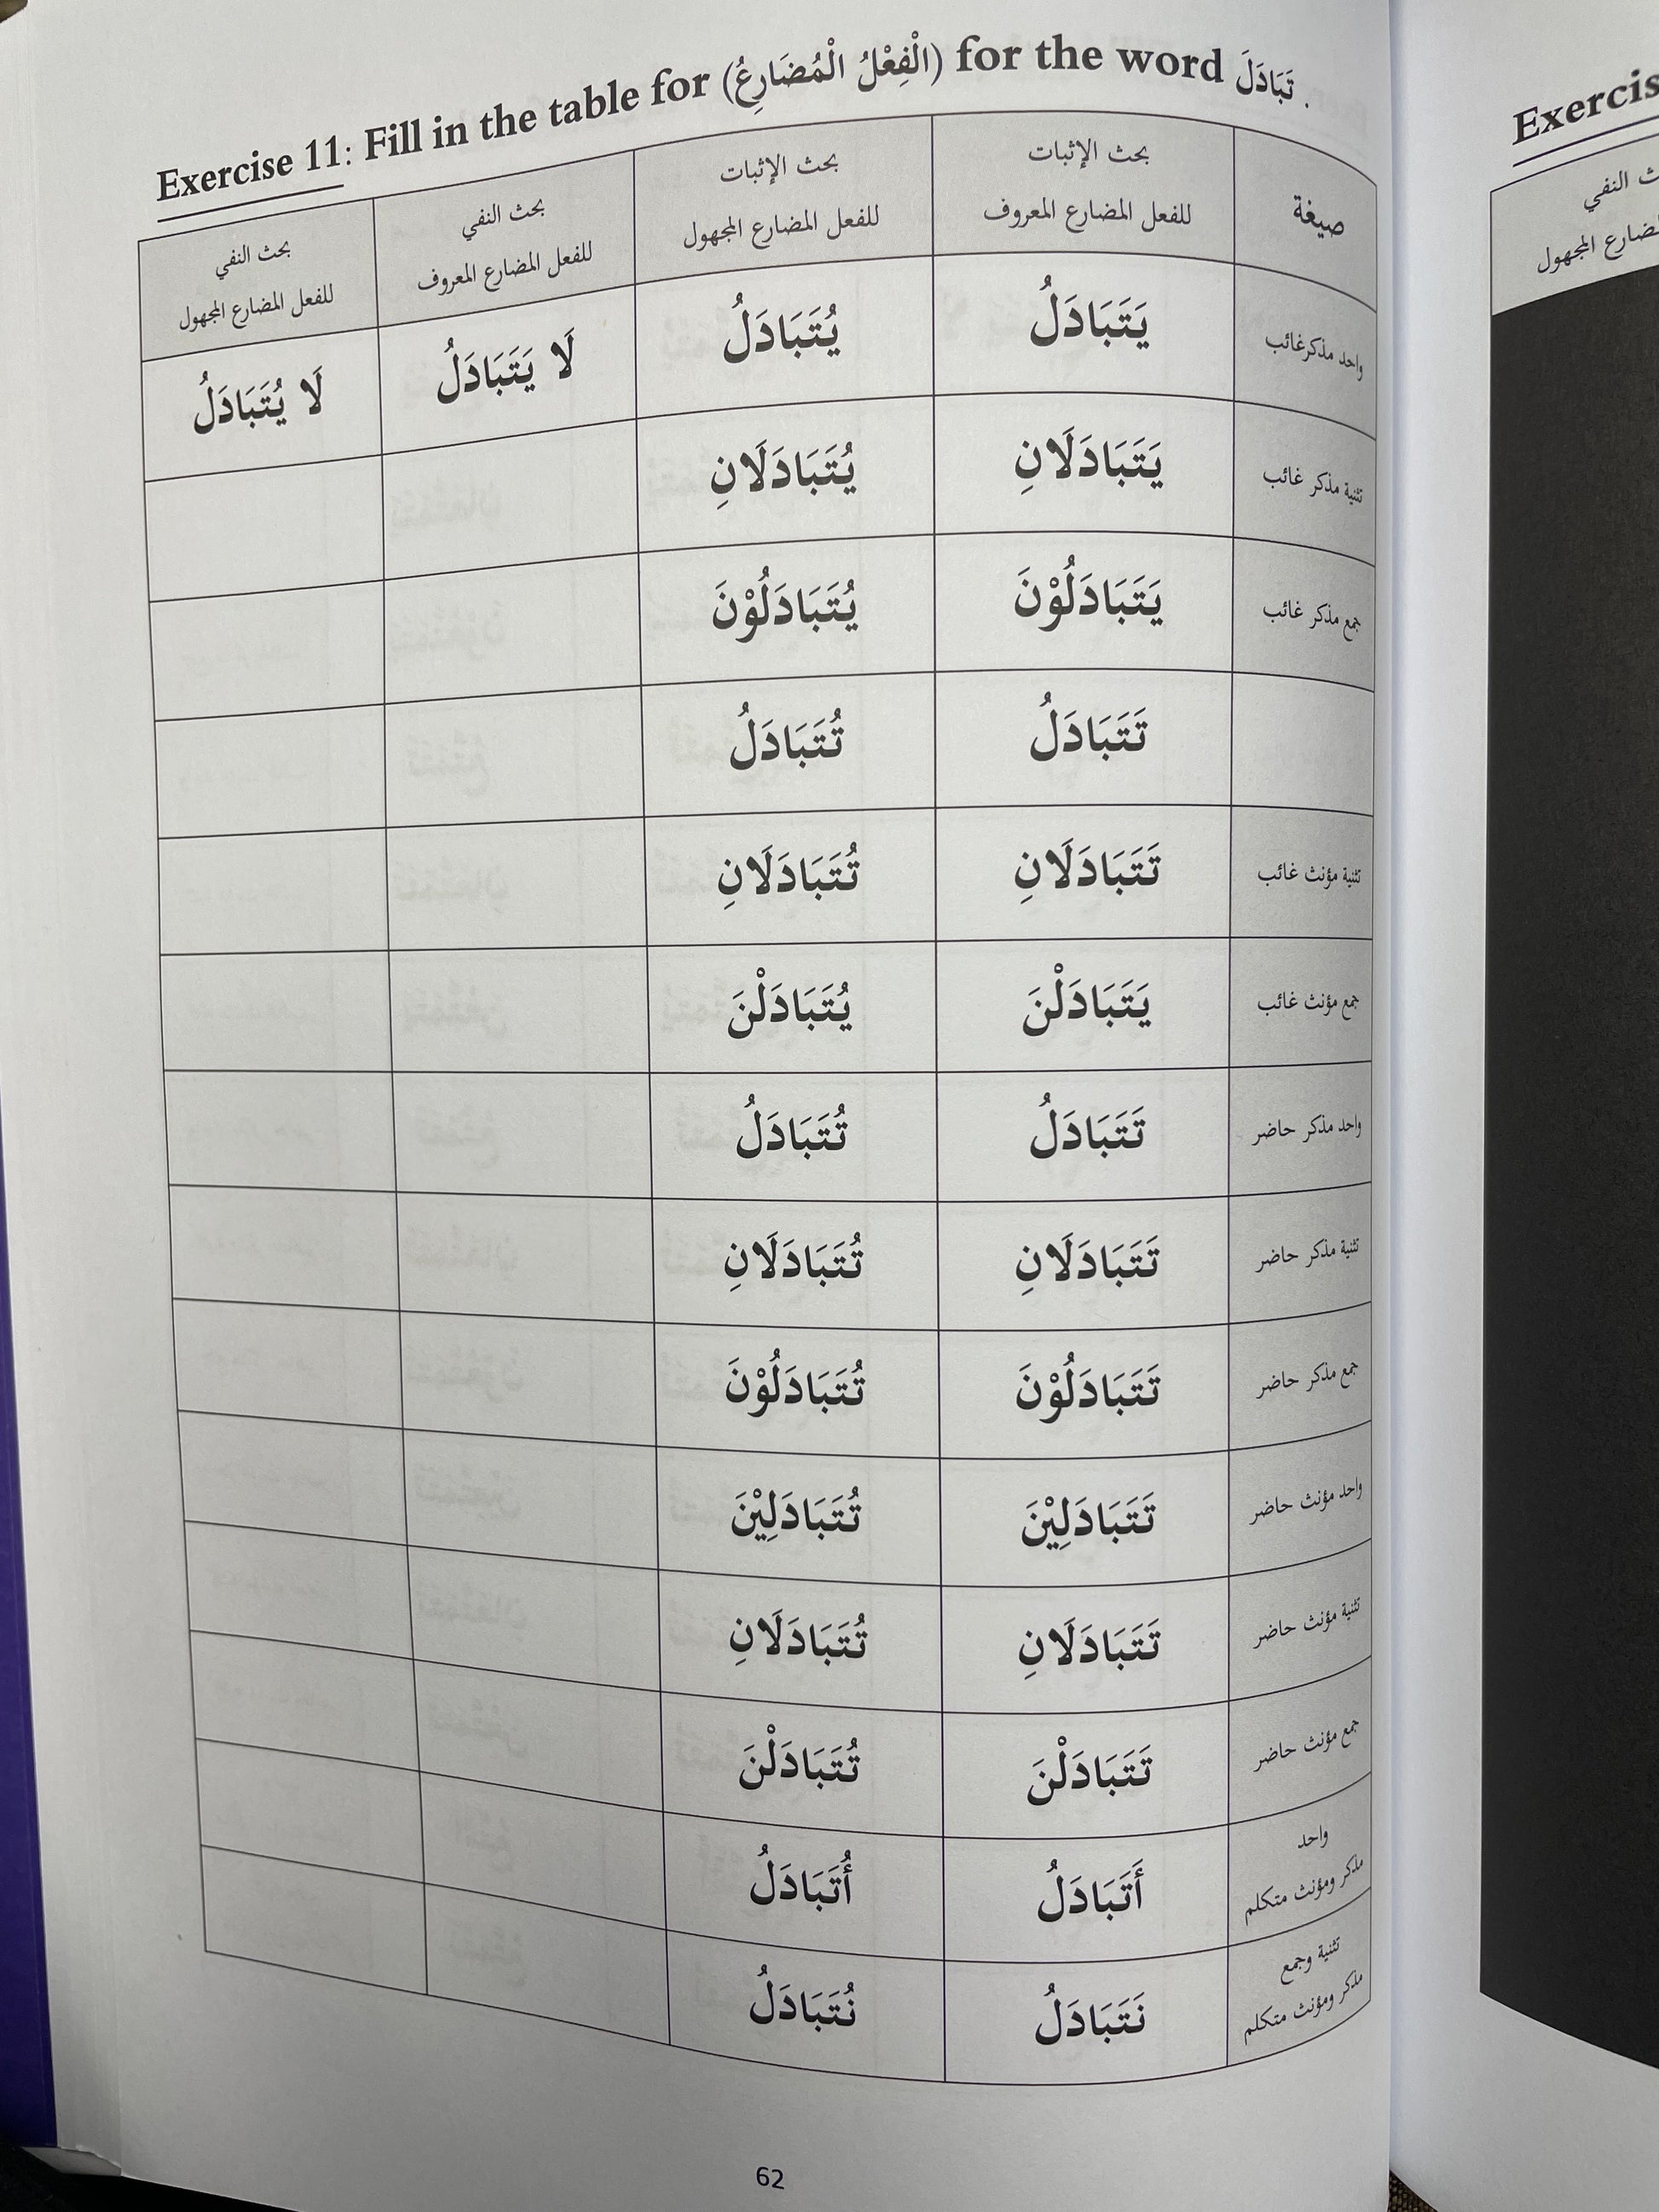 Exercise 11: Fill in the table for (الْفِعْلُ الْمُضَارِعُ) for the word تَبَادَلَ .
صيغة
بحث الإثبات
للفعل المضارع المعروف
بحث الإثبات
للفعل المضارع المجهول
بحث النفي
للفعل المضارع المعروف
بحث النفي
للفعل المضارع المجهول
واحد مذكر غائب يَتَبَادَلُ يُتَبَادَلُ لَا يَتَبَادَلُ لَا يُتَبَادَلُ
تثنية مذكر غائب يَتَبَادَلَانِ يُتَبَادَلَانِ
جمع مذكر غائب يَتَبَادَلُوْنَ يُتَبَادَلُوْنَ
تَتَبَادَلُ تُتَبَادَلُ
تثنية مؤنث غائب تَتَبَادَلَانِ تُتَبَادَلَانِ
جمع مؤنث غائب يَتَبَادَلْنَ يُتَبَادَلْنَ
واحد مذكر حاضر تَتَبَادَلُ تُتَبَادَلُ
تثنية مذكر حاضر تَتَبَادَلَانِ تُتَبَادَلَانِ
جمع مذكر حاضر تَتَبَادَلُوْنَ تُتَبَادَلُوْنَ
واحد مؤنث حاضر تَتَبَادَلِيْنَ تُتَبَادَلِيْنَ
تثنية مؤنث حاضر تَتَبَادَلَانِ تُتَبَادَلَانِ
جمع مؤنث حاضر تَتَبَادَلْنَ تُتَبَادَلْنَ
واحد
مذكر ومؤنث متكلم أَتَبَادَلُ أُتَبَادَلُ
تثنية وجمع
مذكر ومؤنث متكلم نَتَبَادَلُ نُتَبَادَلُ
62
النفي
المجهول